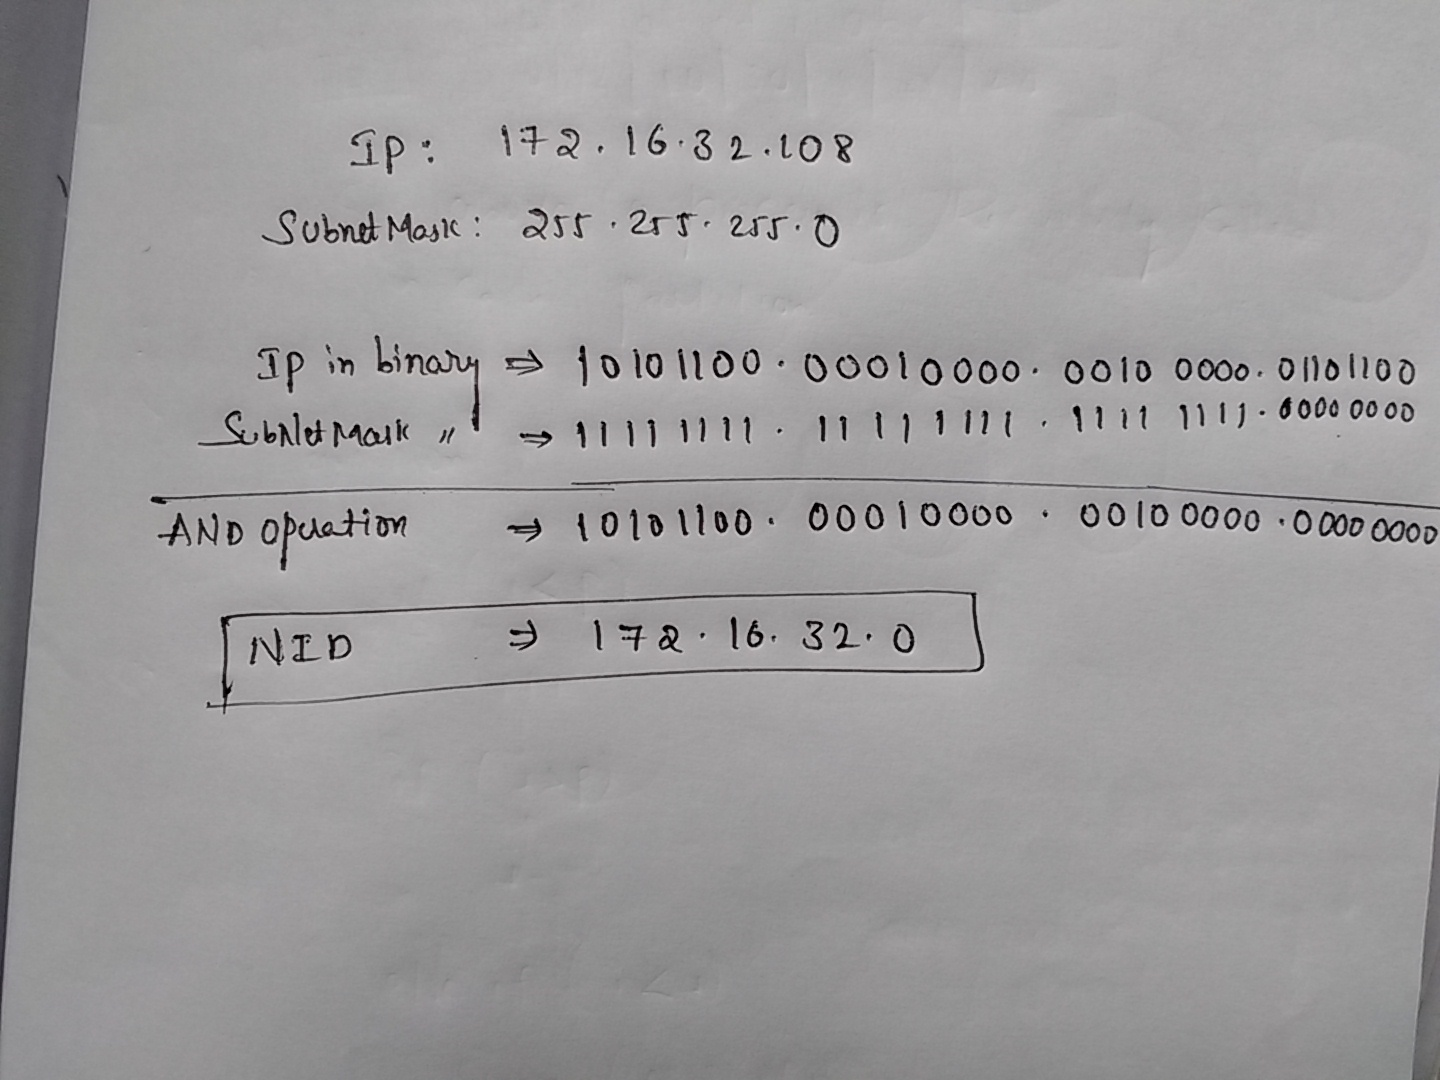 Ip: 172.16.32.108
Subnet Mask: 255.255.255.0
Ip in binary ⇒ 10101100.00010000.0010 0000.01101100
SubNet Mask " ⇒ 1111 1111.11111111.1111 1111.0000 0000
AND Operation ⇒ 10101100.00010000.0010 0000.0000 0000
NID ⇒ 172.16.32.0